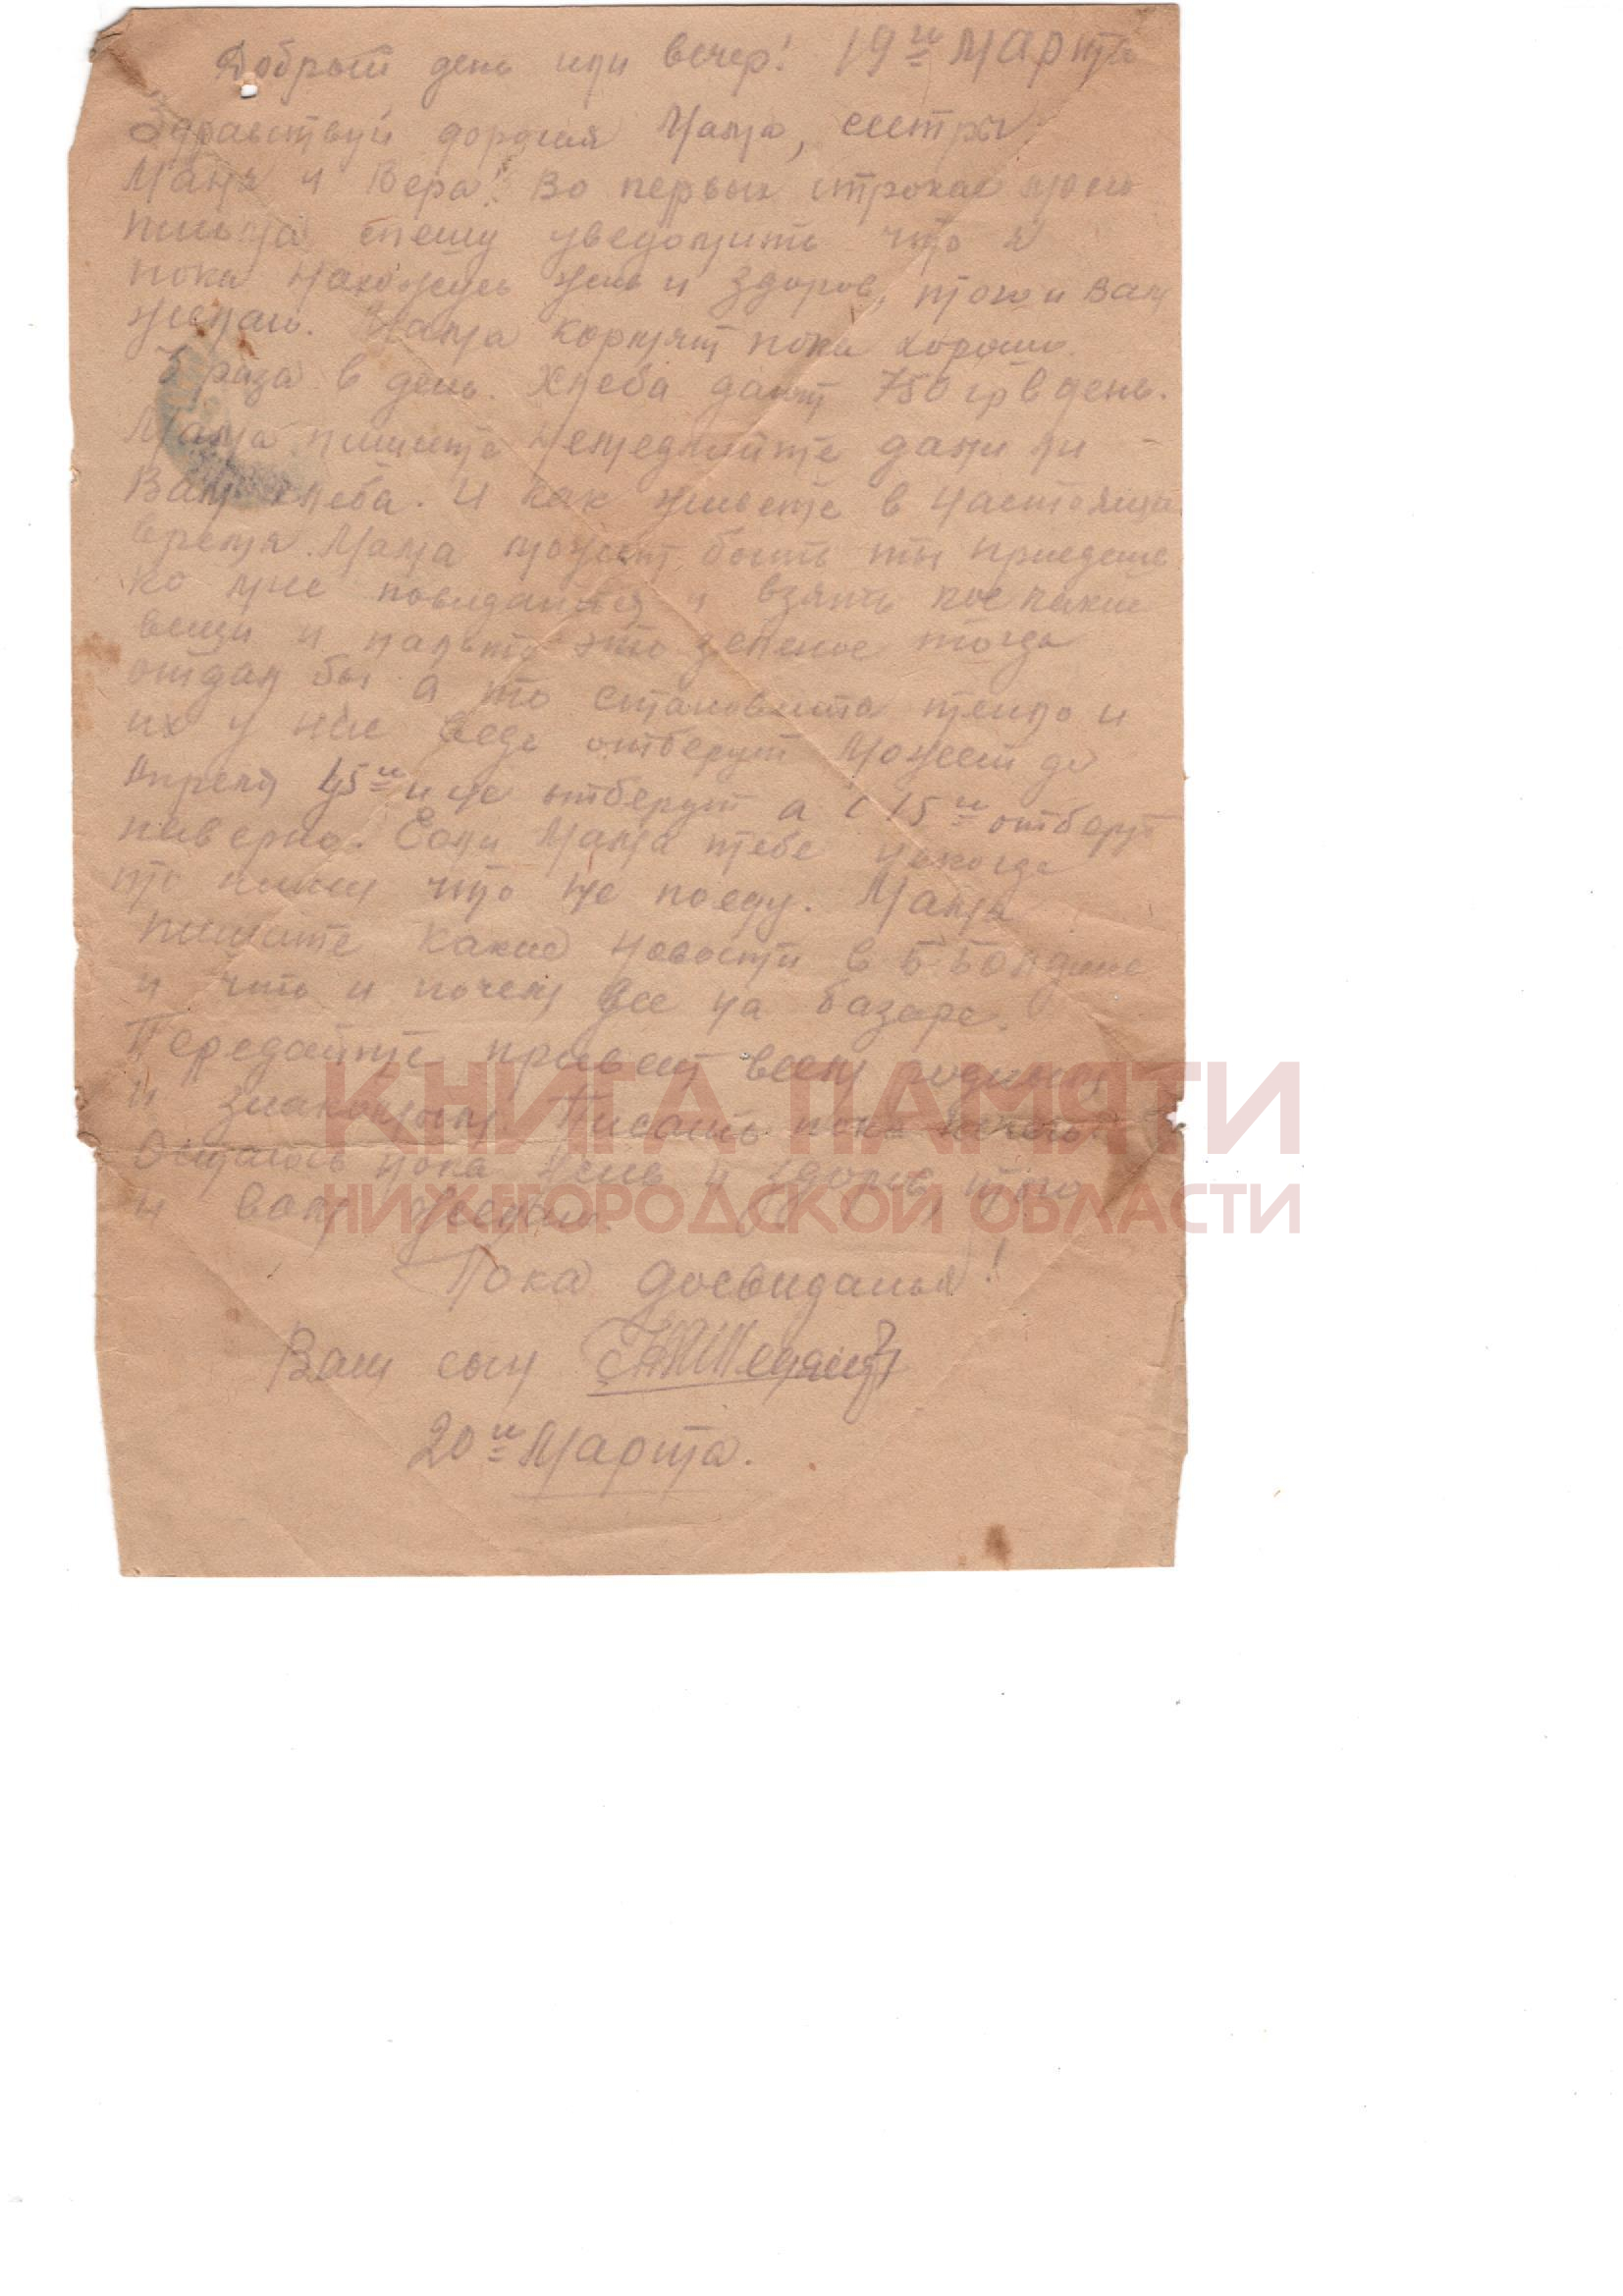 Добрый день или вечер! 19й Марта
Здравствуй дорогая Мама, сестры
Маня и Вера! Во первых строках моего
письма спешу уведомить что я
пока нахожусь жив и здоров, того и Вам
желаю. Мама кормят пока хорошо
3 раза в день. Хлеба дают 750 гр в день.
Мама пишите немедлийте дали ли
Вам хлеба. И как живете в настояще
время. Мама может быть ты приедешь
ко мне повидаться и взять кое какие
вещи и пальто это зеленое тогда
отдал бы а то становится тепло и
их у нас ведь отберут Может до
Апреля 15й и не отберут а с 15й отберут
наверно. Если Мама тебе некогда
то пиши что не поеду. Мама
пишите какие новости в Б Болдине
и что и почем все на базаре.
Передайте привет всем родным
и знакомым. Писать пока нечего
Остаюсь пока жив и здоров, того
и вам желаю.
Пока досвиданья!
Ваш сын
20й Марта.
КНИГА ПАМЯТИ
НИЖЕГОРОДСКОЙ ОБЛАСТИ